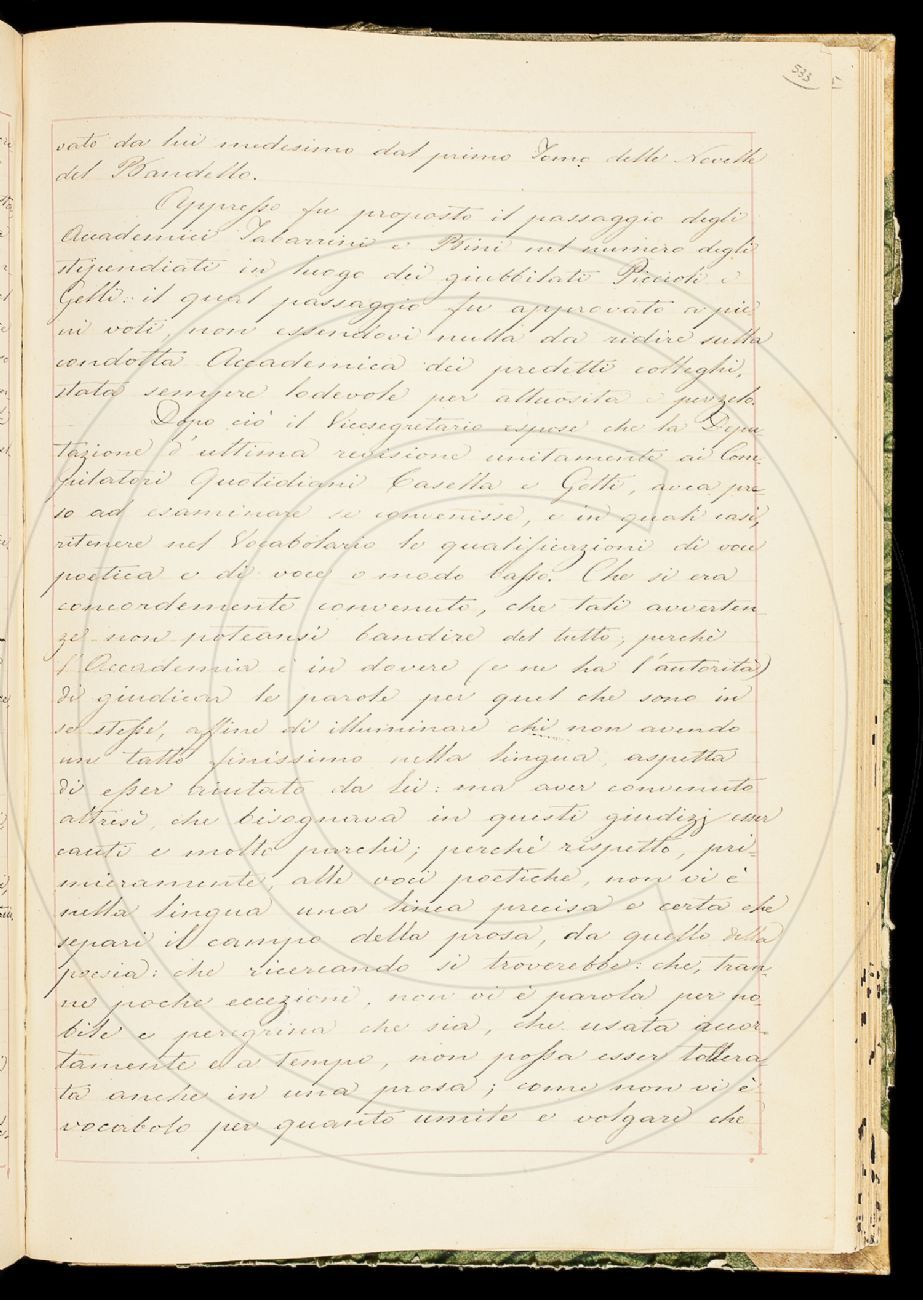 533
vato da lui medesimo dal primo Tomo delle Novelle
del Bandello.
Appresso fu proposto il passaggio degli
Accademici Tabarrini e Bini nel numero degli
stipendiati in luogo dei giubbilati Piccioli e
Gelli: il qual passaggio fu approvato a pie-
ni voti, non essendovi nulla da ridire sulla
condotta Accademica dei predetti colleghi,
stata sempre lodevole per attuosità e per zelo.
Dopo ciò il Vicesegretario espose che la Depu-
tazione d'ultima revisione unitamente ai Com-
pilatori Quotidiani Casella e Gotti, avea pre-
so ad esaminare se convenisse, e in quali casi,
ritenere nel Vocabolario le qualificazioni di voce
poetica e di voce o modo basso. Che si era
concordemente convenuto, che tali avverten-
ze non poteansi bandire del tutto; perchè
l'Accademia è in dovere (e ne ha l'autorità)
di giudicar le parole per quel che sono in
se stesse, affine di illuminare chi non avendo
un tatto finissimo nella lingua, aspetta
di esser aiutato da lei: ma aver convenuto
altresì, che bisognava in questi giudizj esser
cauti e molto parchi; perchè rispetto, pri-
mieramente, alle voci poetiche, non vi è
nella lingua una linea precisa e certa che
separi il campo della prosa, da quello della
poesia: che ricercando si troverebbe: che, tran-
ne poche eccezioni, non vi è parola per no-
bile e peregrina che sia, che usata accor-
tamente e a tempo, non possa esser tollera-
ta anche in una prosa; come non vi è
vocabolo per quanto umile e volgare che